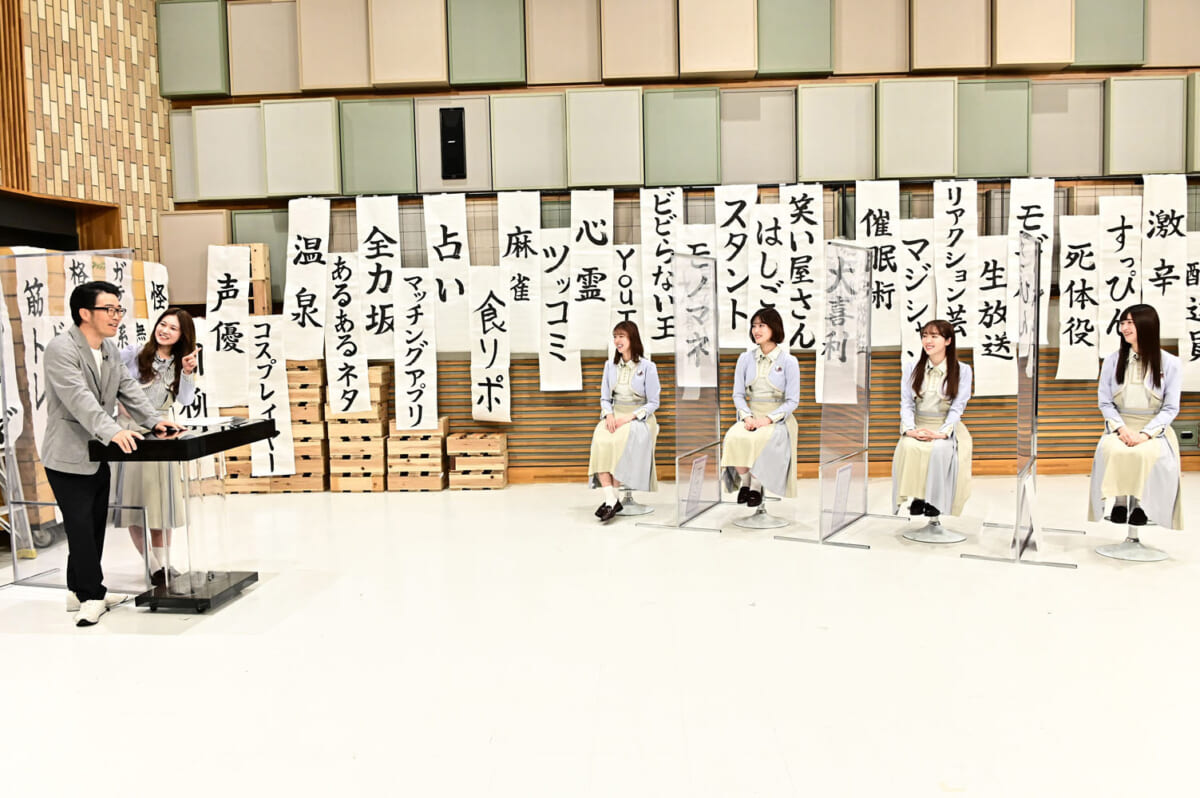 筋トレ
声優
コスプレイヤー
温泉
あるあるネタ
全力坂
マッチングアプリ
占い
食リポ
麻雀
ツッコミ
心霊
You
ビビらない王
モノマネ
スタント
はしご
笑い屋さん
大喜利
催眠術
マジシャン
リアクション芸
生放送
死体役
すっぴん
激辛
配達員